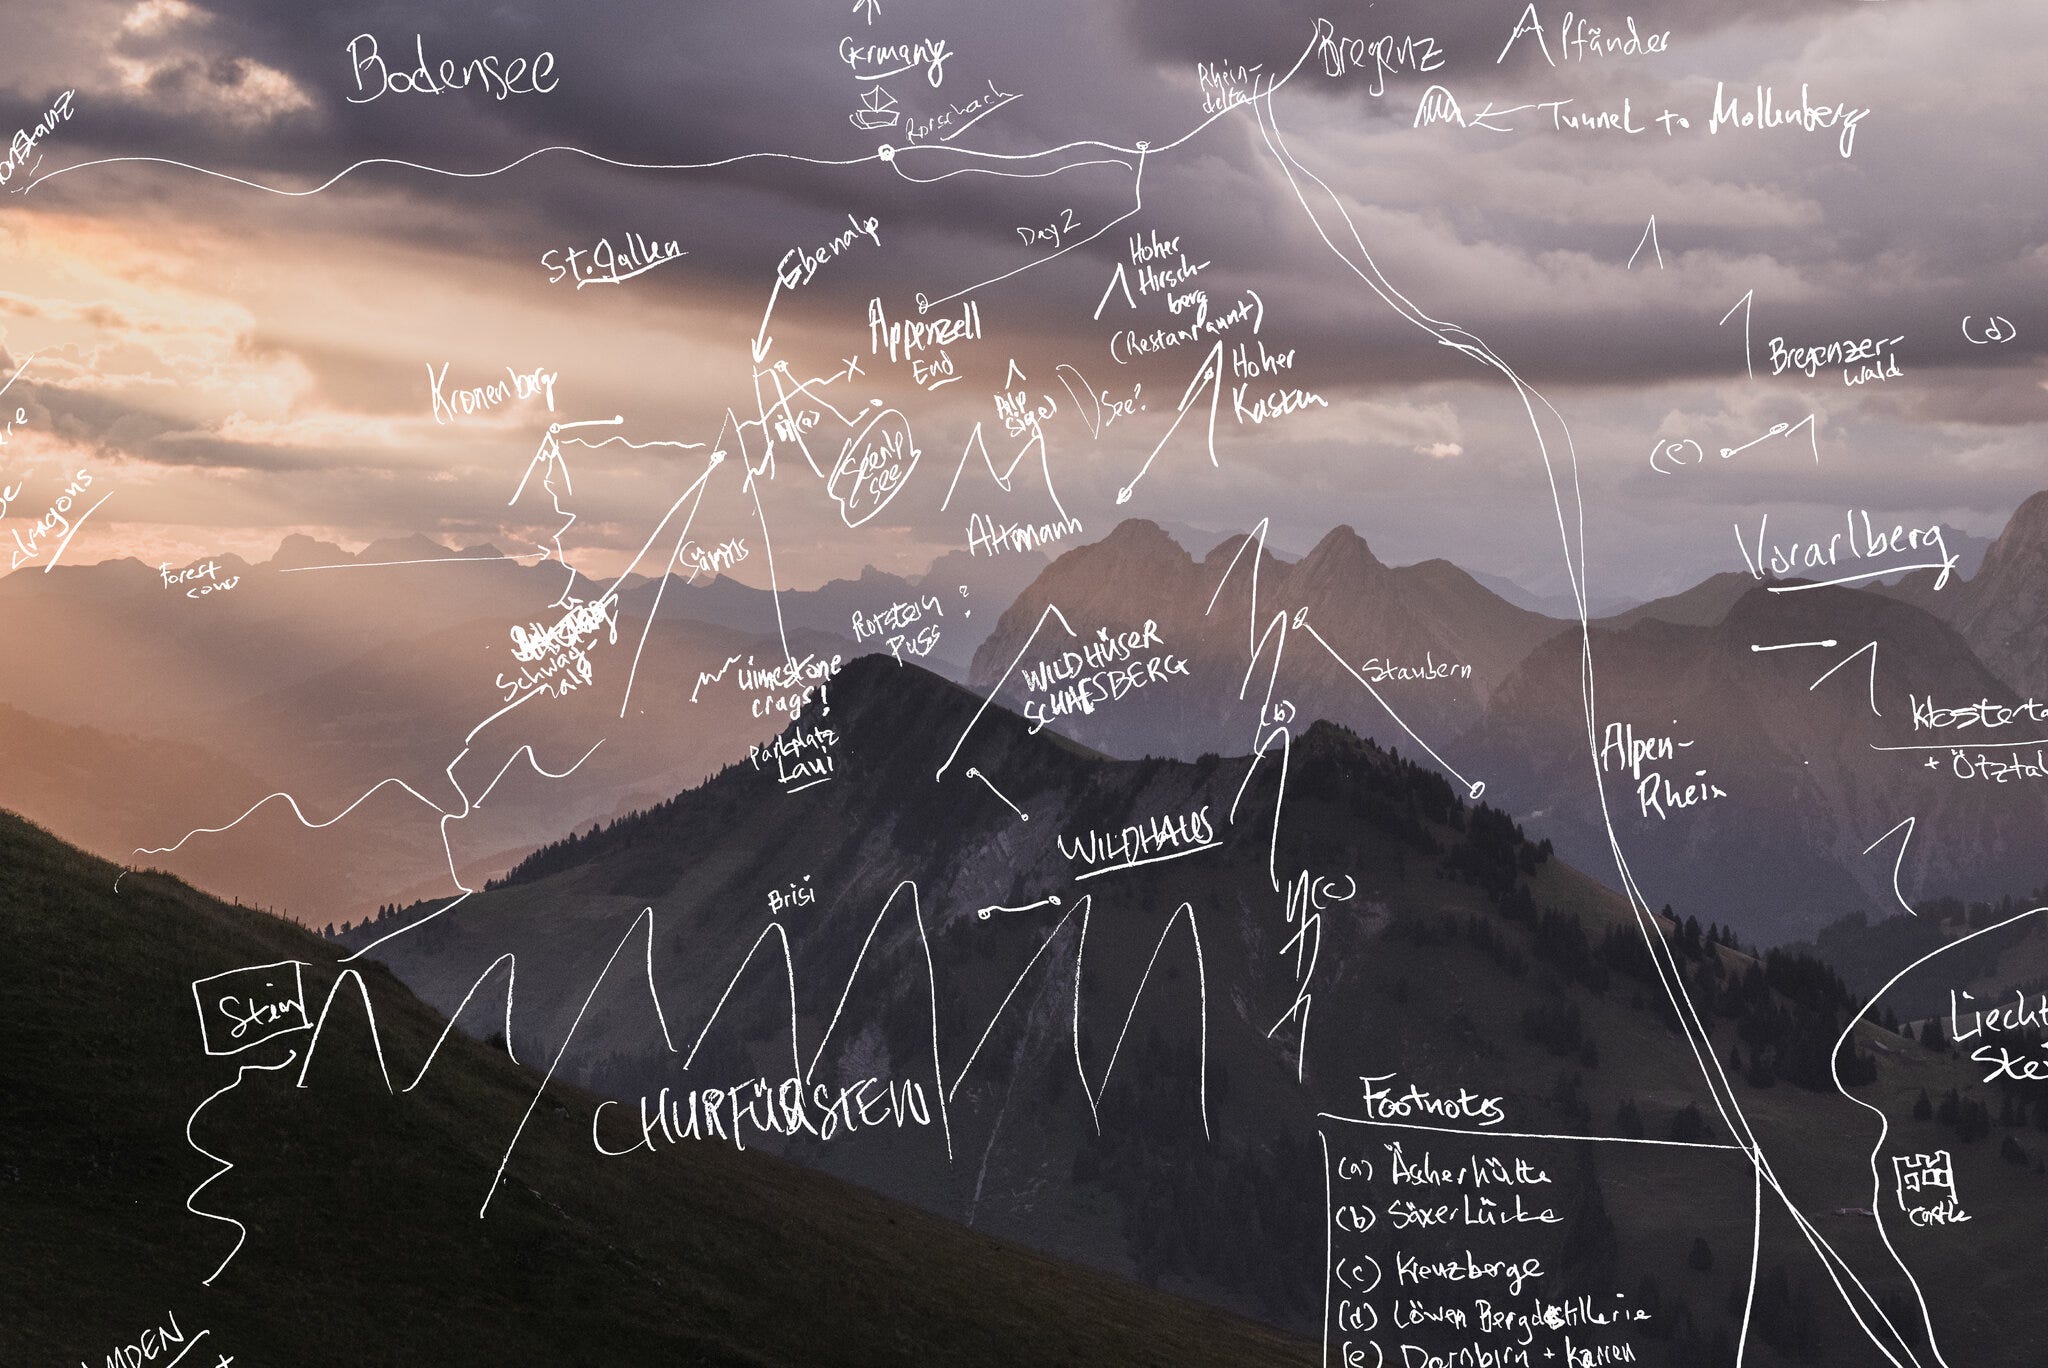 Bodensee
Germany
Rorschach
Rhein-
delta
Bregenz
Pfänder
Tunnel to Mollenberg
St. Gallen
Ebenalp
Day 2
Appenzell
End
Hoher
Hirsch-
berg
(Restaraunt)
Hoher
Kasten
Bregenzer-
wald
(d)
Kronenberg
X
(a)
Seealp
see
Alp
Sigel
See?
Altmann
(e)
Vorarlberg
dragons
Forest
Säntis
Schwäg-
alp
Rotstein ?
Pass
Limestone
crags!
Parkplatz
Laui
WILDHUSER
SCHAFSBERG
Staubern
(b)
Alpen-
Rhein
Klosterta
+ Ötztal
WILDHAUS
Brisi
(c)
Stein
CHURFÜRSTEN
Liecht
Stei
Castle
Footnotes
(a) Äscherhütte
(b) Saxerlücke
(c) Kreuzberge
(d) Löwen Bergdestillerie
(e) Dornbirn + Karren